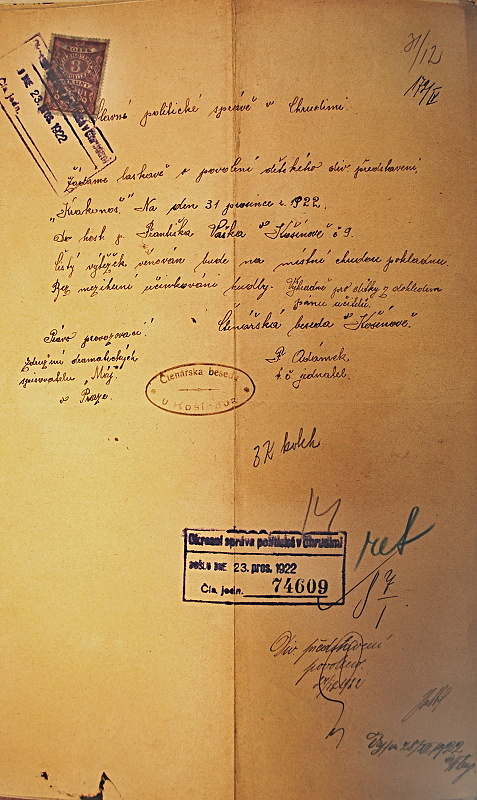 31/12
Slavné politické správě v Chrudimi.
Žádáme laskavě o povolení dětského div. představení,
"Krakonoš." Na den 31 prosince r. 1922.
Do host. p. Františka Vaška v "Košinově" č 9.
čistý výtěžek věnován bude na místní chudou pokladnu
Bez mezihraní účinkování hudby. Výhradně pro dítky z dohledem
pánů učitelů.
Čtenářská beseda v "Košinově"
Právo provozovací:
Združení dramatických
spisovatelů "Máj"
v Praze.
P. Adámek
t. č. jednatel.
Čtenářská beseda
v Košinově
3 K kolek
14
Okresní správa politická v Chrudimi
DOŠLO DNE 23. pros. 1922
Čís. jedn. 74609
ret
Div. představení
povoleno
23. pros. 1922
Čís. jedn.